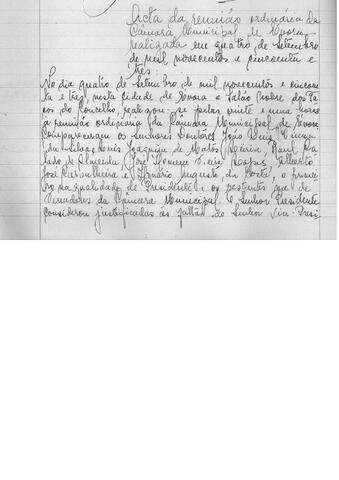 Acta da reunião ordinária da
Câmara Municipal de Evora
realizada em quatro de Setembro
de mil novecentos e cincoenta e
três
No dia quatro de Setembro de mil novecentos e cincoen-
ta e três, nesta cidade de Evora e Salão Nobre dos Pa-
ços do Concelho, realizou-se pelas vinte e uma horas
a reunião ordinária da Câmara Municipal de Evora
Compareceram os Senhores Doutores João Luiz
da Silva, Luis Joaquim de Matos Raul
de Almeida, José Homem Alberto
José Carvalheira e Januário Augusto da Costa, o primei-
ro na qualidade de Presidente e os restantes na de
Vereadores da Câmara Municipal. O Senhor Presidente
considerou justificadas as faltas do Senhor Vice-Presi